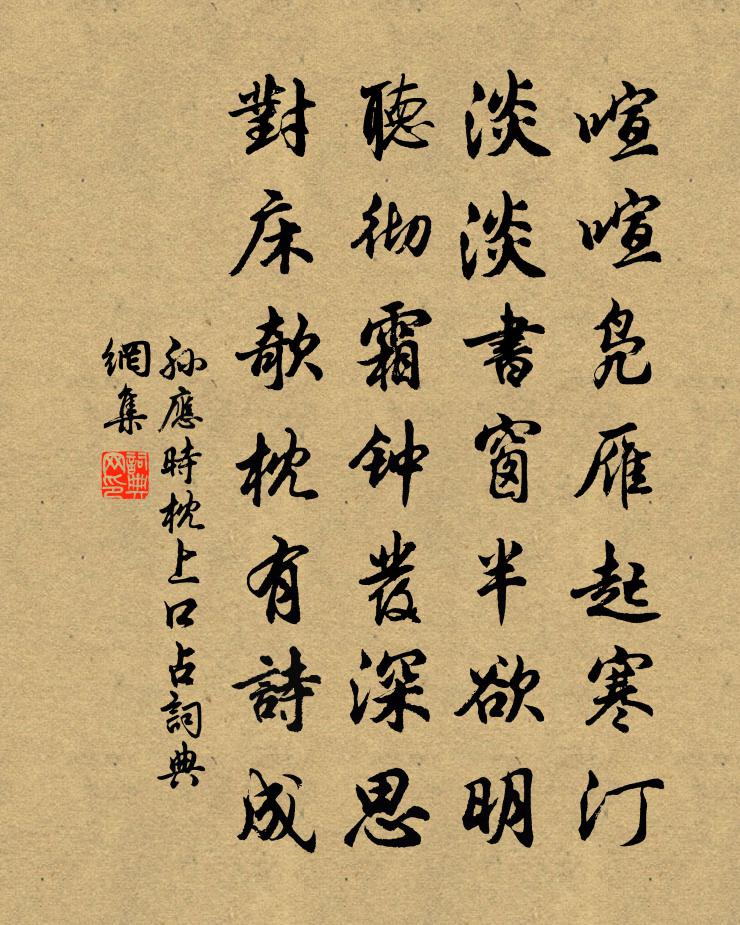 喧喧凫雁起寒汀
淡淡書窗半欲明
聽彻霜钟發深思
對床欹枕有詩成
孙應時枕上口占詞典
網集
詞典
网印